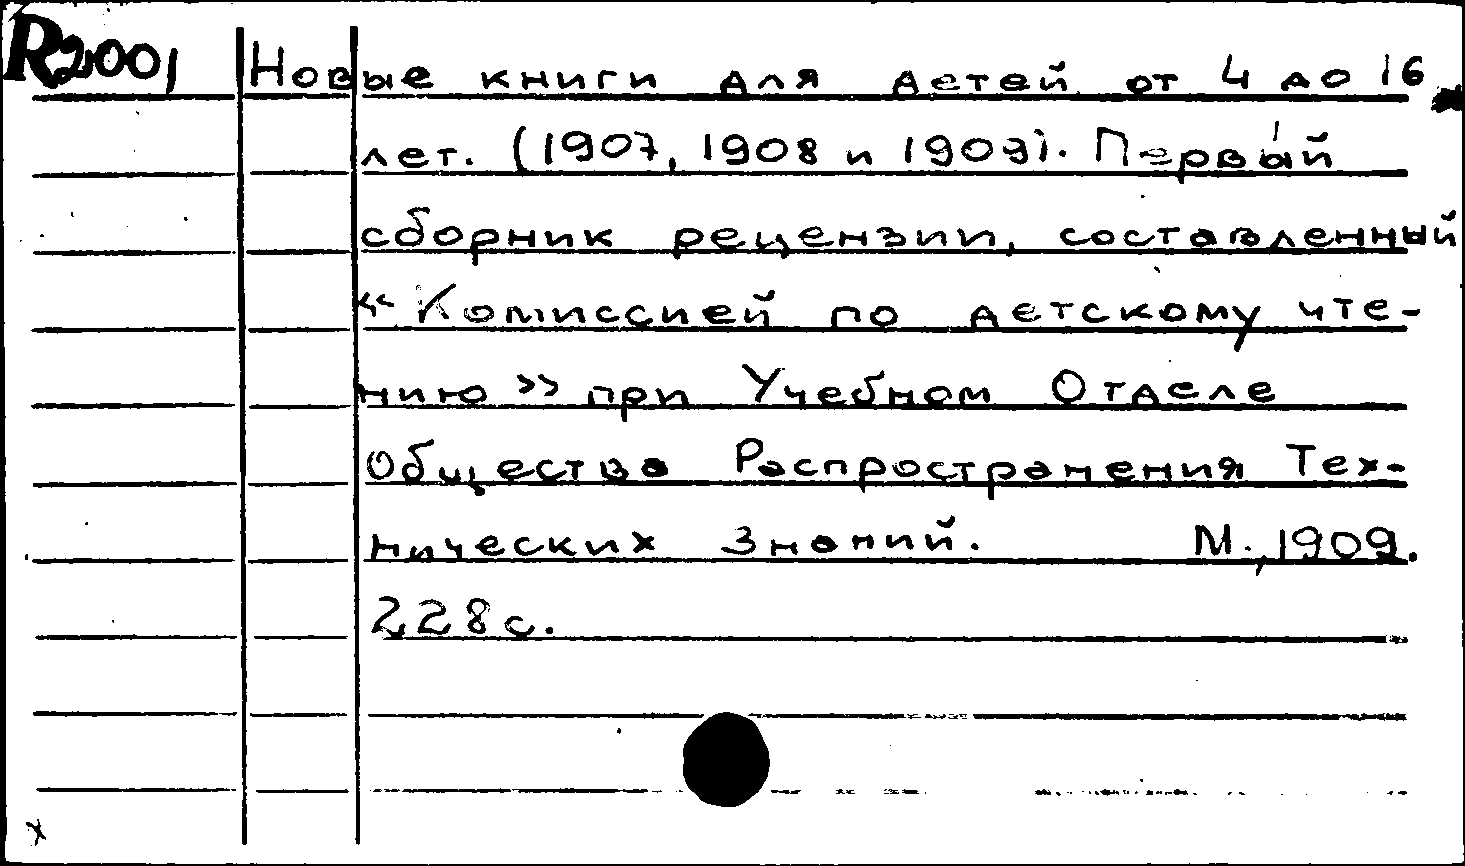 R2001
Новые книги для детей от 4 до 16
лет. (1907, 1908 и 1909). Первый
сборник рецензии, составленный
“Комиссией по детскому чте-
нию” при Учебном Отделе
Общества Распространения Тех-
нических Знаний. М., 1909.
228 с.
x